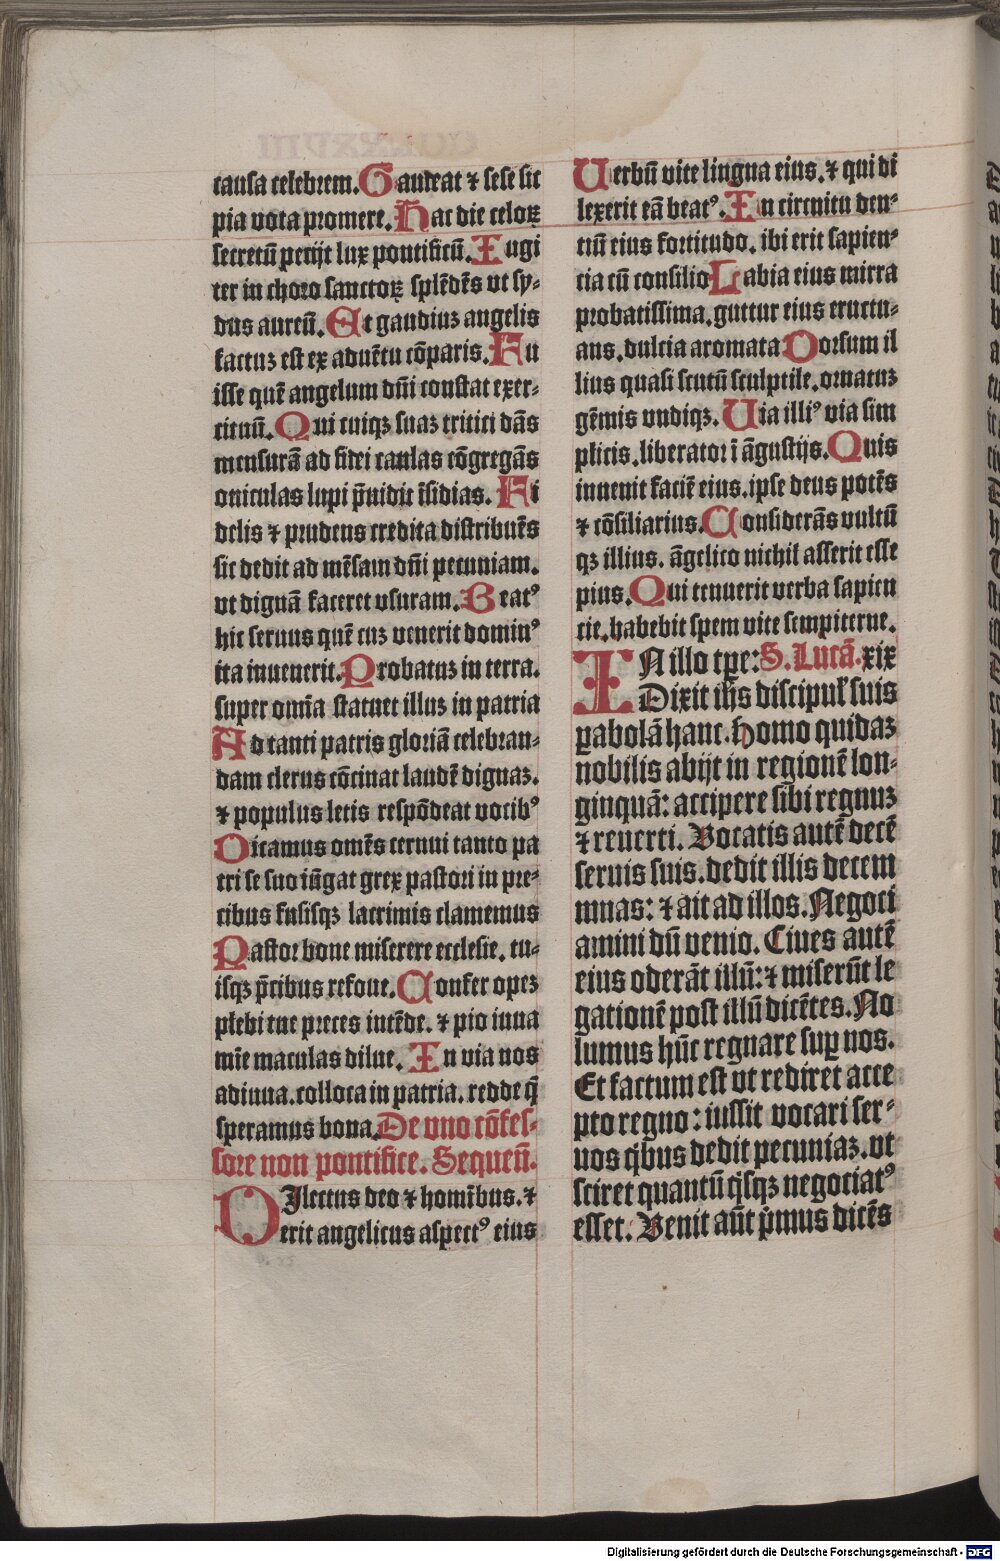 causa celebrem. Gaudeat ⁊ sese sic
pia vota promere. Hac die celoꝝ
secretū petijt lux pontificū. Iugi
ter in choro sanctoꝝ splēdēs vt sy-
dus aureū. Et gaudiuꝫ angelis
factuꝫ est ex aduētu cōparis. Fu
isse quē angelum dn̄i constat exer-
cituū. Qui cuiqꝫ suaꝫ tritici dās
mensurā ad fidei caulas cōgregās
ouiculas lupi p̄uidit īsidias. Fi
delis ⁊ prudens credita distribuēs
sic dedit ad mēsam dn̄i pecuniam.
vt dignā faceret vsuram. Beatꝰ
hic seruus quē cuꝫ venerit dominꝰ
ita inuenerit. Probatuꝫ in terra.
super om̄ia statuet illuꝫ in patria
Ad tanti patris gloriā celebran-
dam clerus cōcinat laudē dignaꝫ.
⁊ populus letis respōdeat vocibꝰ
Dicamus omēs cernui tanto pa
tri se suo iūgat grex pastori in pre-
cibus fusisqꝫ lacrimis clamemus
Pastor bone miserere ecclesie. tu-
isqꝫ p̄cibus refoue. Confer opeꝫ
plebi tue preces intēde. ⁊ pio iuua
mīe maculas dilue. In via nos
adiuua. colloca in patria. redde q̄
speramus bona. De vno cōfes-
sore non pontifice. Sequen̄.
DIlectus deo ⁊ homībus. ⁊
erit angelicus aspectꝰ eius
Uerbū vite lingua eius. ⁊ qui di
lexerit eā beatꝰ. In circuitu den-
tiū eius fortitudo. ibi erit sapien-
tia cū consilio Labia eius mirra
probatissima. guttur eius eructu-
ans. dulcia aromata Dorsum il
lius quasi scutū sculptile. ornatuꝫ
gēmis vndiqꝫ. Uia illiꝰ via sim
plicis. liberator ī āgustijs. Quis
inuenit faciē eius. ipse deus potēs
⁊ cōsiliarius. Considerās vultū
qꝫ illius. āgelico nichil asserit esse
pius. Qui tenuerit verba sapien
tie. habebit spem vite sempiterne.
IN illo tꝑe: S. Lucā. xix
Dixit ihs discipul' suis
ꝑabolā hanc. Homo quidaꝫ
nobilis abijt in regionē lon-
ginquā: accipere sibi regnuꝫ
⁊ reuerti. Vocatis autē decē
seruis suis. dedit illis decem
mnas: ⁊ ait ad illos. Negoci
amini dū venio. Ciues autē
eius oderāt illū: ⁊ miserūt le
gationē post illū dicētes. No
lumus hūc regnare suꝑ nos.
Et factum est vt rediret acce
pto regno: iussit vocari ser-
uos qⁱbus dedit pecuniaꝫ. vt
sciret quantū qⁱsqꝫ negociatꝰ
esset. Venit aūt pⁱmus dicēs
Digitalisierung gefördert durch die Deutsche Forschungsgemeinschaft - DFG